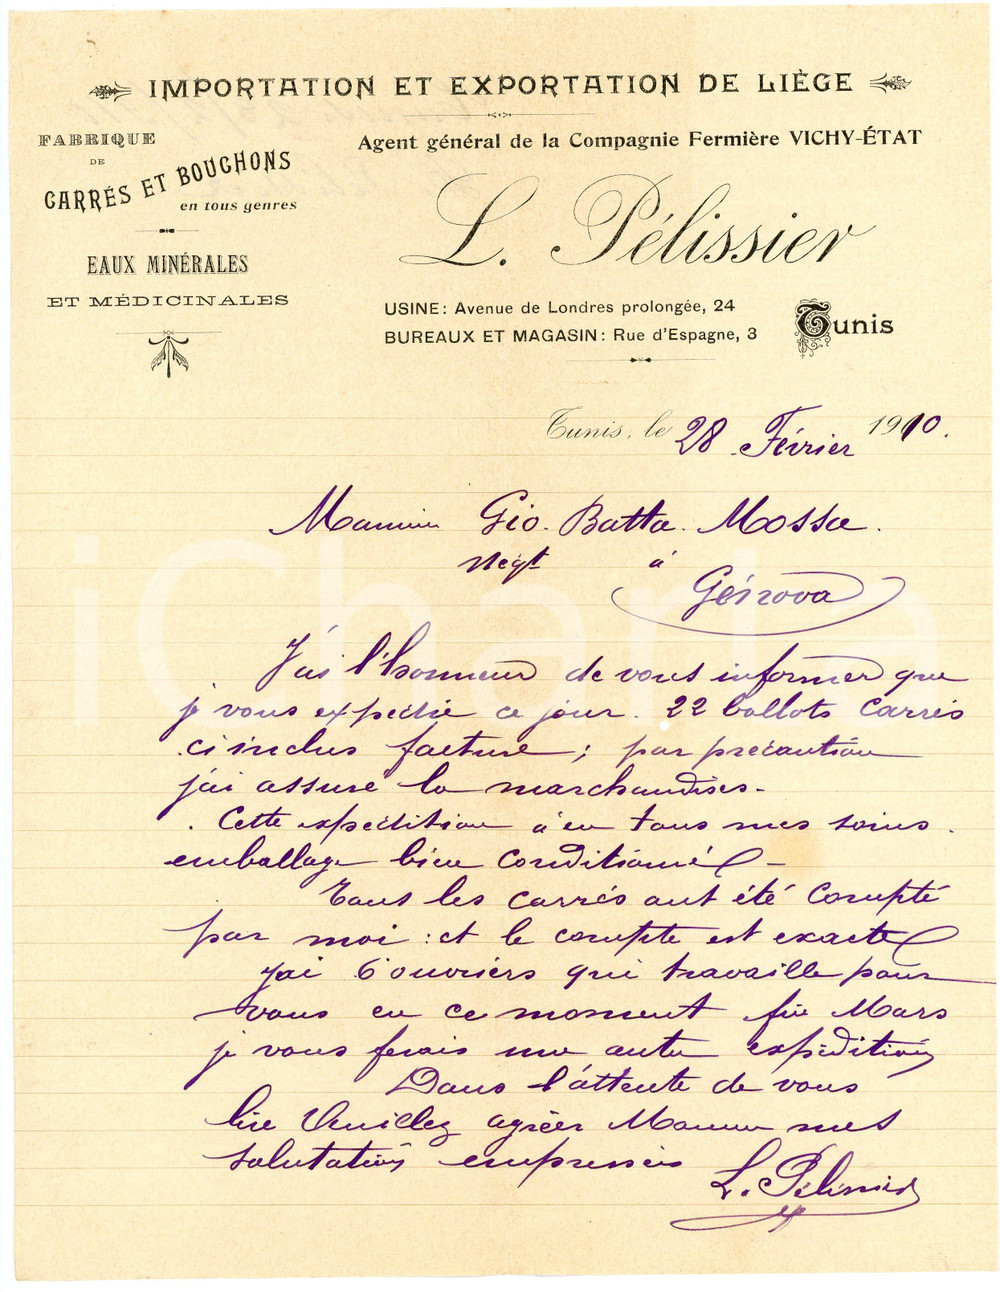 IMPORTATION ET EXPORTATION DE LIÈGE
FABRIQUE
DE
CARRÉS ET BOUCHONS
en tous genres
EAUX MINÉRALES
ET MÉDICINALES
Agent général de la Compagnie Fermière VICHY-ÉTAT
L. Pélissier
USINE: Avenue de Londres prolongée, 24
BUREAUX ET MAGASIN: Rue d'Espagne, 3
Tunis
Tunis, le 28 Février 1910.
Monsieur Gio. Batta. Mossa.
Negt à
Génova
J'ai l'honneur de vous informer que
je vous expédie ce jour. 22 ballots carrés
ci inclus facture; par précaution
j'ai assuré la marchandises-
. Cette expédition à eu tous mes soins.
emballage bien conditionné-
Tous les carrés ont été compté
par moi: et le compte est exacte
J'ai 6 ouvriers qui travaille pour
vous en ce moment fin Mars
je vous ferais une autre expédition
Dans l'attente de vous
lire Veuillez agréer Monsieur mes
salutations empressées
L. Pélissier
iCharta